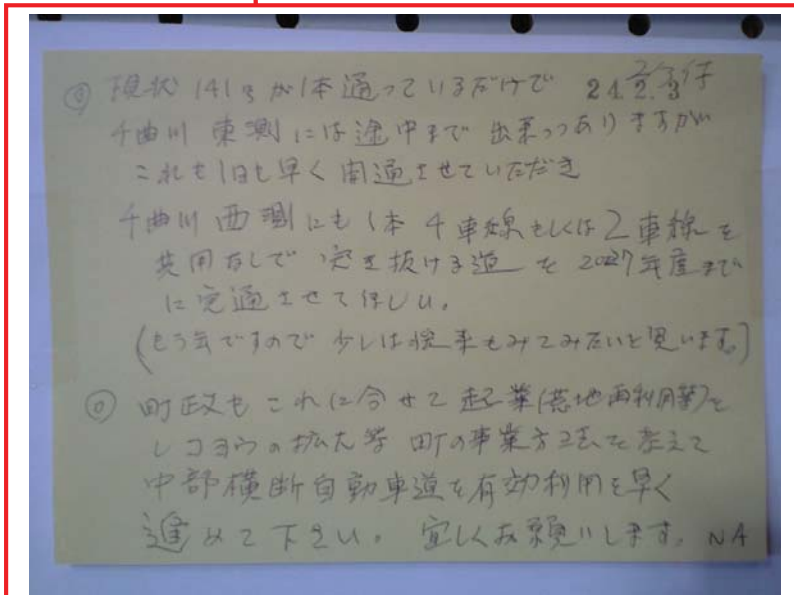 ◎ 現状 141号が1本通っているだけで 24.2.3
千曲川 東側には途中まで 出来つつありますが
これも1日も早く 開通させていただき
千曲川 西側にも 1本 4車線もしくは2車線を
共用なしで 突き抜ける道を 2027年度まで
に完通させてほしい。
(もう年ですので 少しは将来もみてみたいと思います。)
◎ 町政もこれに合せて 起業(荒地再利用等)を
の拡大等 町の事業方法を考えて
中部横断自動車道を有効利用を早く
進めて下さい。 宜しくお願いします。 NA